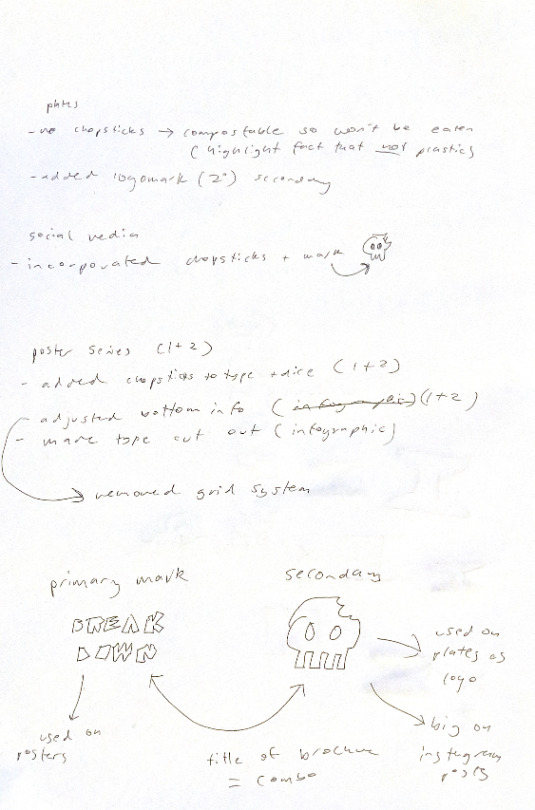 plates
- no chopsticks → compostable so won't be eaten
(highlight fact that not plastics
- added logomark (2°) secondary
social media
- incorporated chopsticks + mark
poster series (1+2)
- added chopsticks to type + dice (1+2)
- adjusted bottom info (infographic) (1+2)
- made type cut out (infographic)
→ removed grid system
primary mark
secondary
BREAK
DOWN
used on
plates as
logo
used on
posters
title of brochure
= combo
big on
instagram
posts